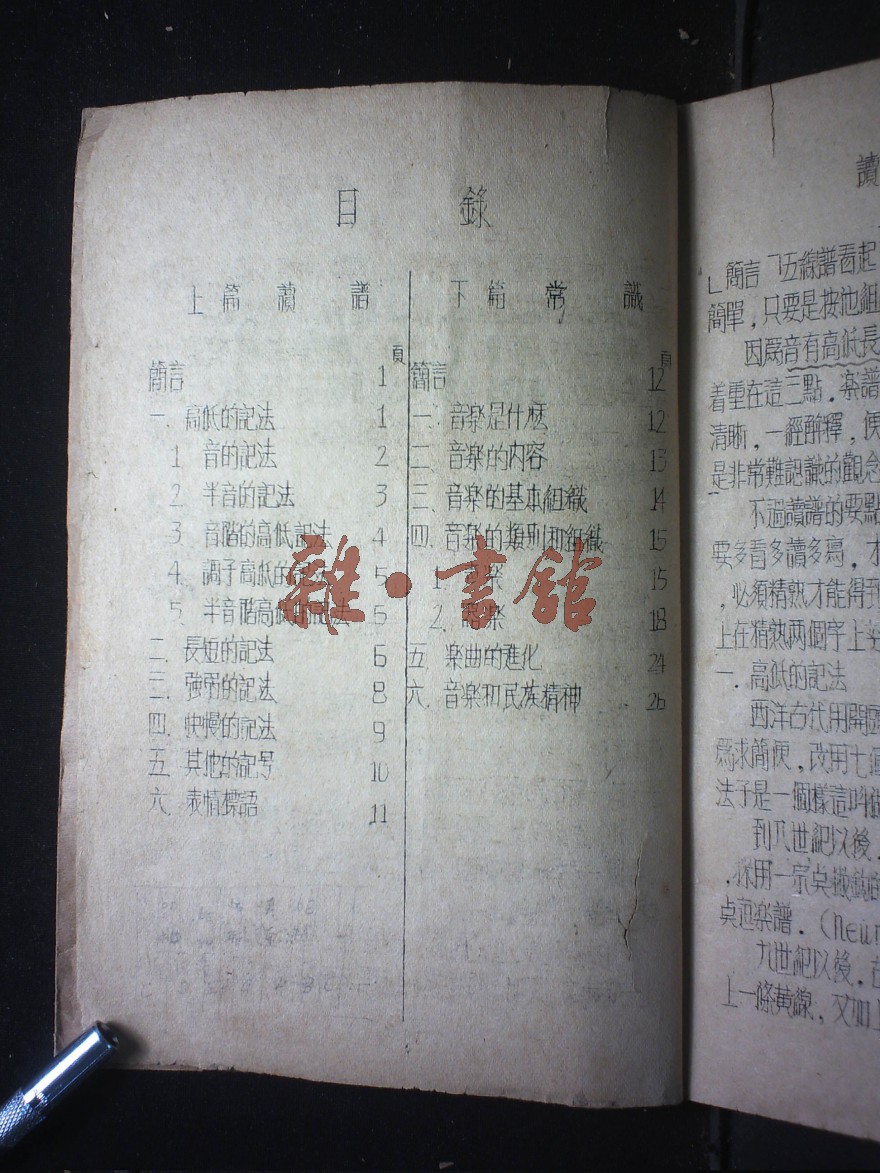 目錄
上篇 讀譜
頁
簡言 1
一. 高低的記法 1
1 音的記法 2
2. 半音的記法 3
3. 音階的高低記法 4
4. 調子高低的記法 5
5. 半音階高低的記法 6
二. 長短的記法 6
三. 強弱的記法 8
四. 快慢的記法 9
五. 其他的記号 10
六. 表情標語 11
下篇 常識
頁
簡言 12
一. 音楽是什麽 12
二. 音楽的内容 13
三. 音楽的基本組織 14
四. 音楽的類別和組織 15
1. 楽 15
2. 楽 18
五. 楽曲的進化 24
六. 音楽和民族精神 26
雜·書館
讀
簡言 五線譜看起
簡單，只要是按他組
因爲音有高低長
着重在這三點．楽譜
清晰，一經解釋，便
是非常難認識的觀念
不過讀譜的要點
要多看多讀多寫，才
，必須精熟才能得到
上在精熟两個字上
一. 高低的記法
西洋古代用開
爲求簡便，改用七個
法子是一個樣這叫做
到八世紀以後，
．採用一宗
楽譜．(Neu
九世紀以後，在
上一條黄線，又加上